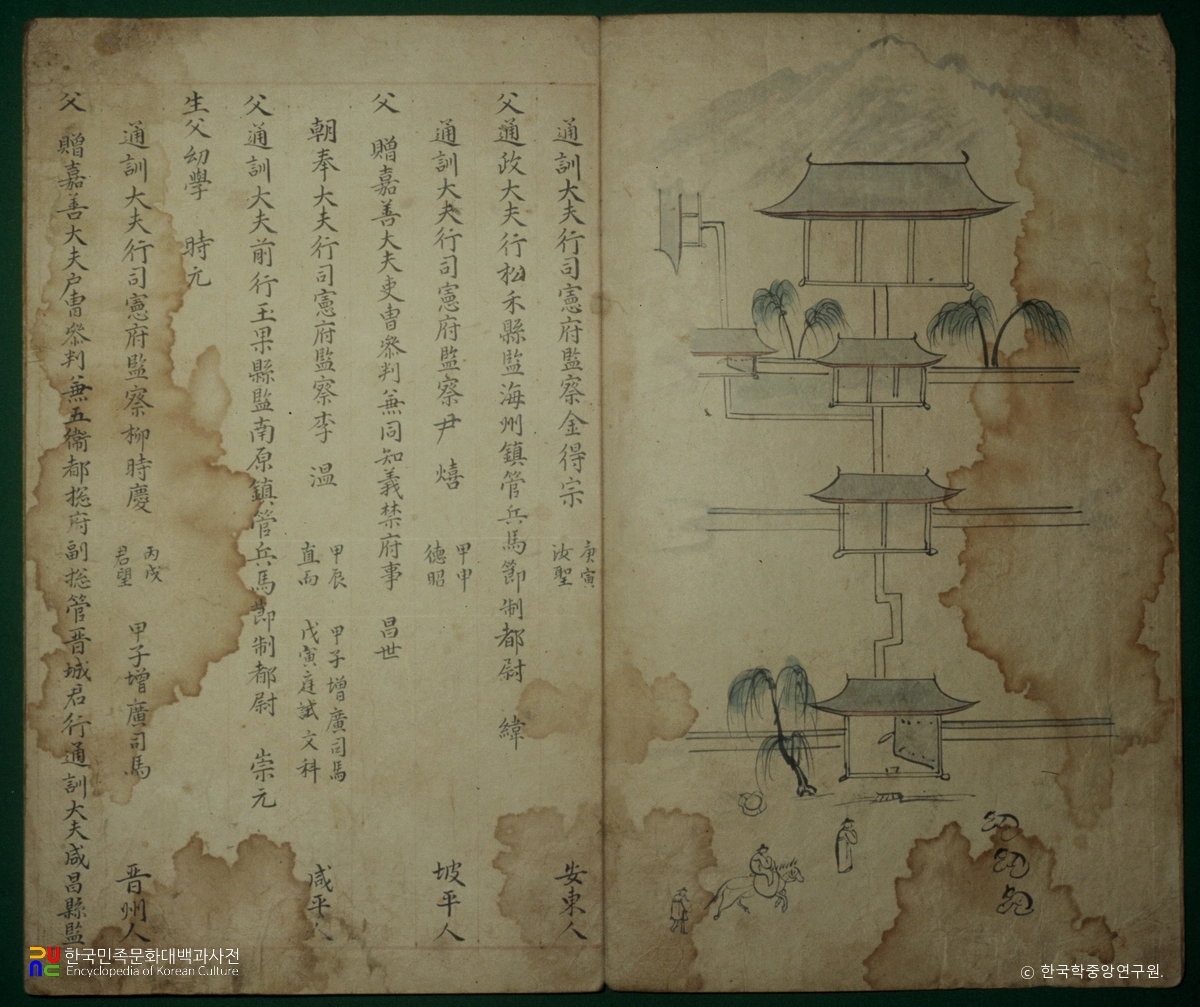 通訓大夫行司憲府監察金得宗 庚寅 汝聖 安東人
父通政大夫行松禾縣監海州鎮管兵馬節制都尉 緯
通訓大夫行司憲府監察尹熺 甲申 德昭 坡平人
父 贈嘉善大夫吏曹叅判兼同知義禁府事 昌世
朝奉大夫行司憲府監察李溫 甲辰 直而 甲子增廣司馬 戊寅庭試文科 咸平人
父通訓大夫前行玉果縣監南原鎮管兵馬節制都尉 崇元
生父幼學 時元
通訓大夫行司憲府監察柳時慶 丙戌 君望 甲子增廣司馬 晋州人
父 贈嘉善大夫戶曹叅判兼五衞都摠府副摠管晋城君行通訓大夫咸昌縣監
한국민족문화대백과사전
Encyclopedia of Korean Culture
© 한국학중앙연구원.